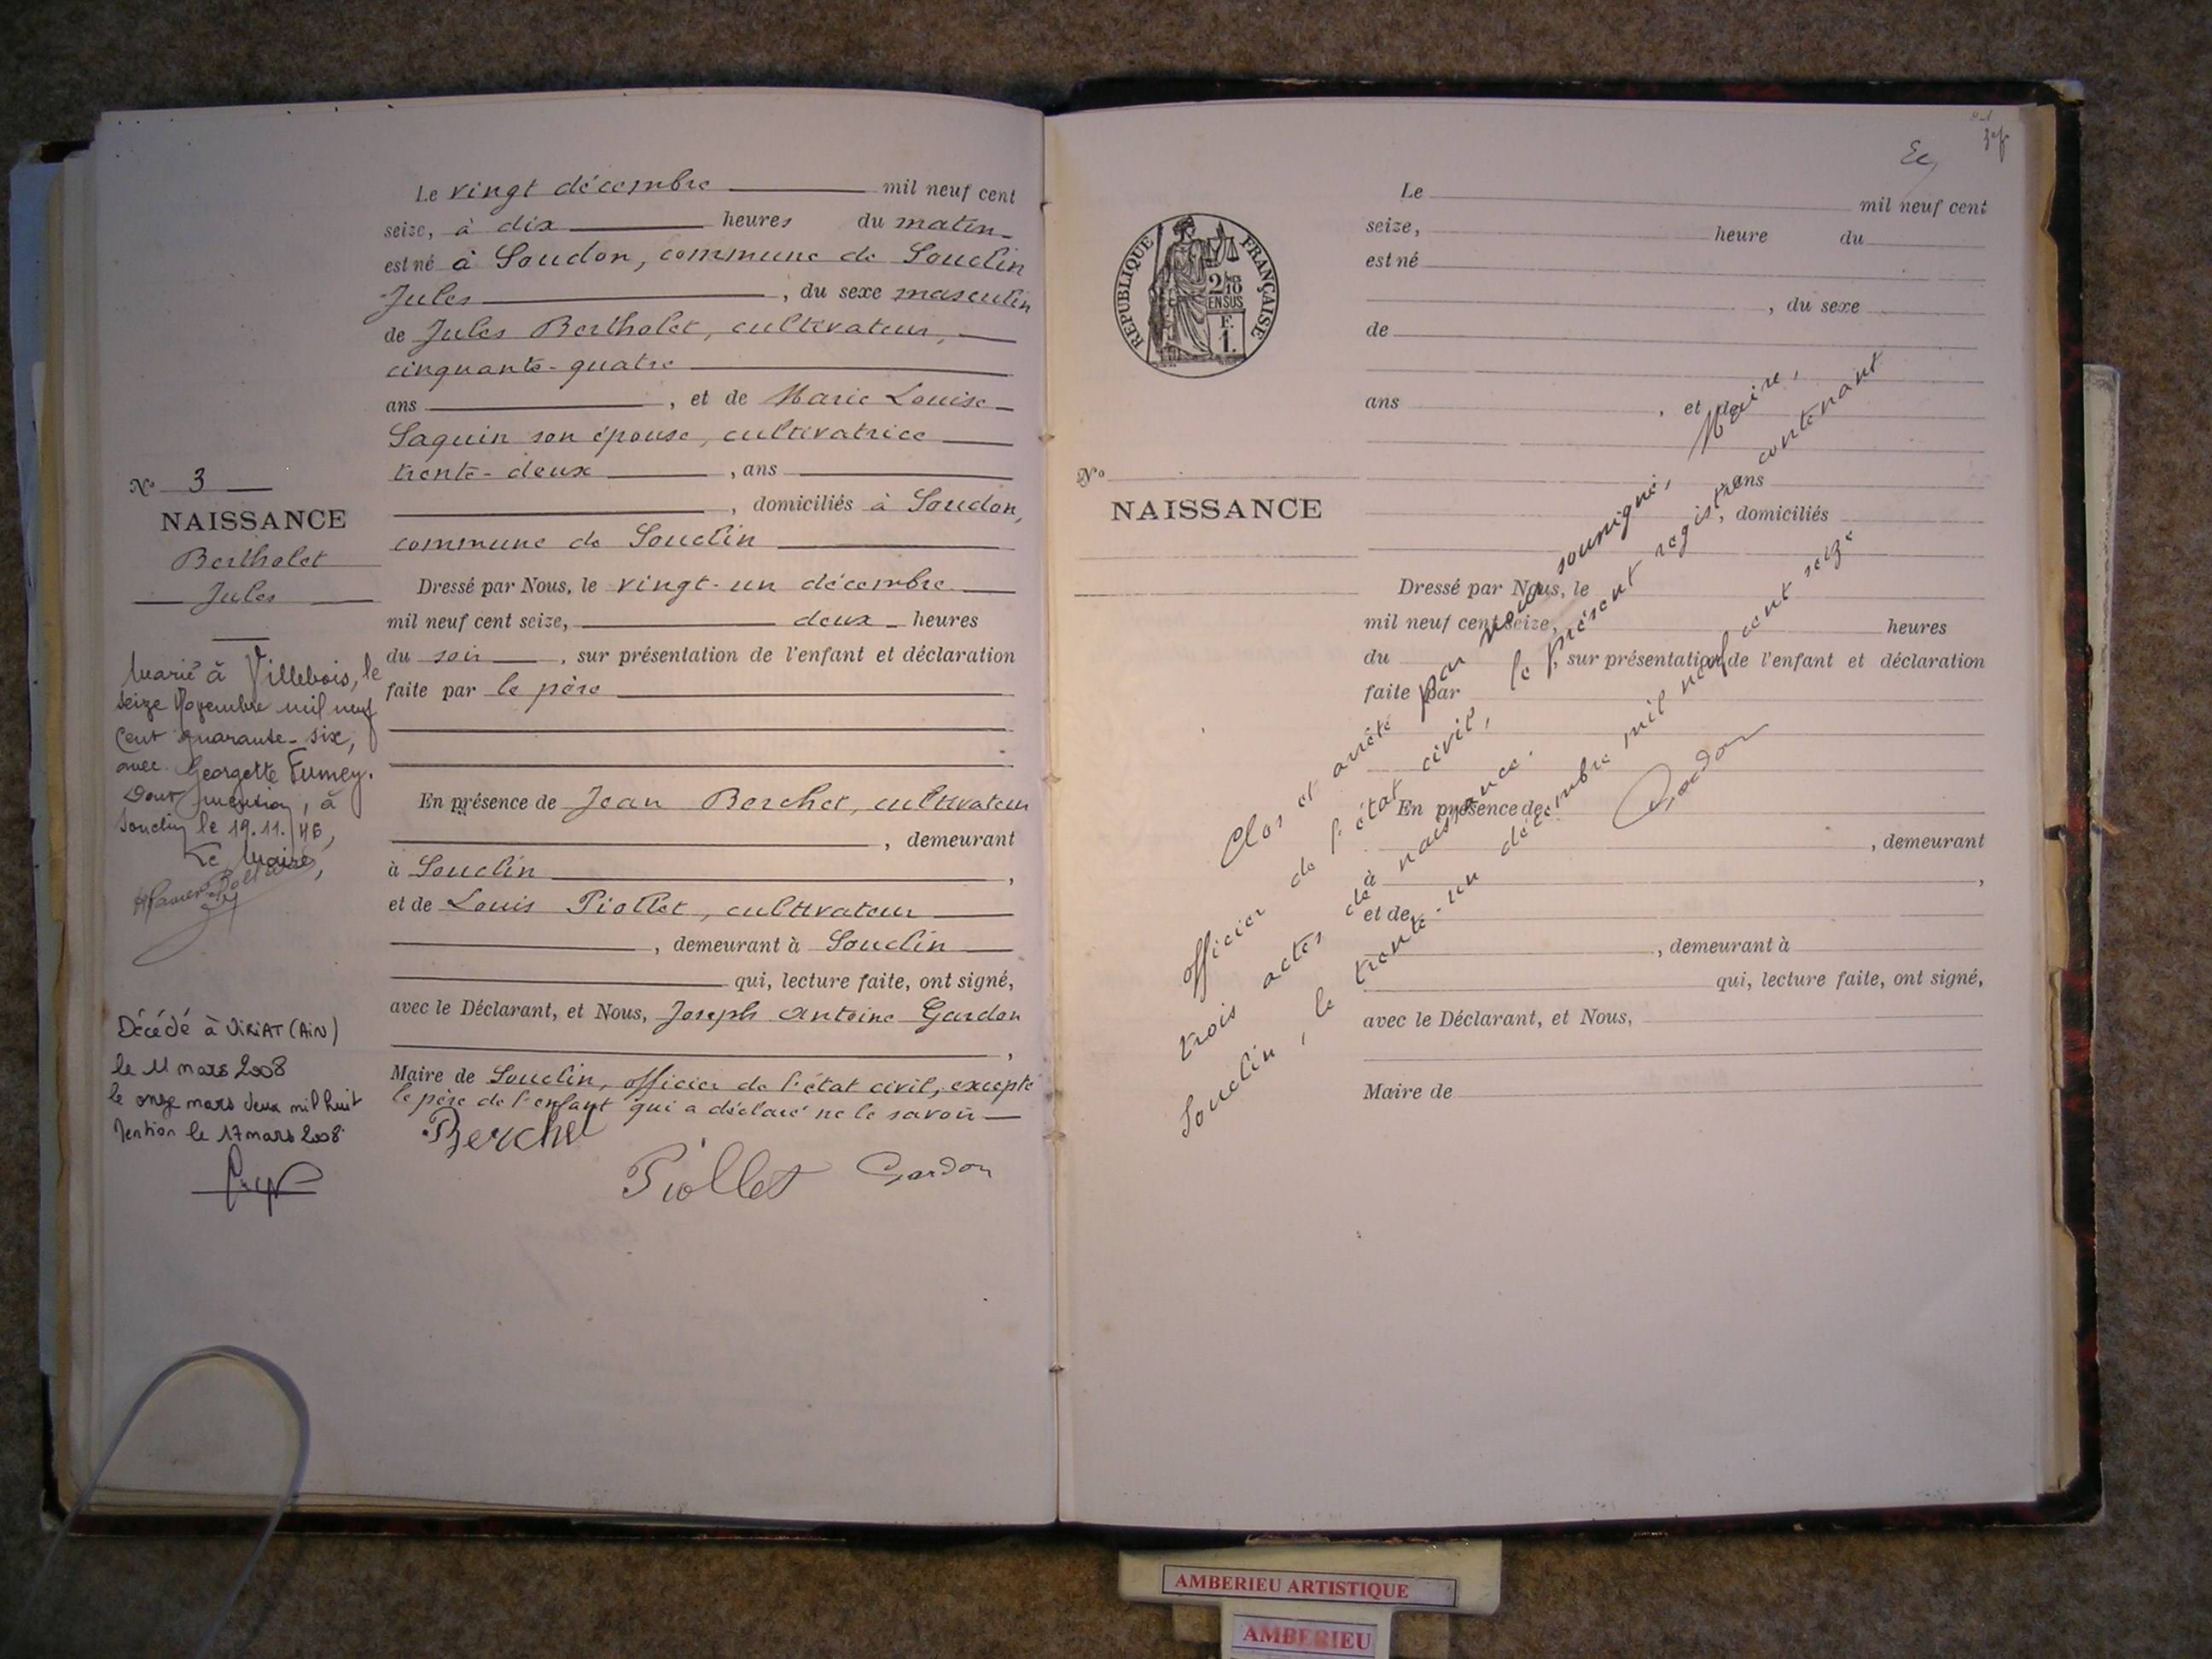 Le vingt décembre mil neuf cent
seize, à dix heures du matin
est né à Soudon, commune de Souclin
Jules, du sexe masculin
de Jules Bertholet, cultivateur,
cinquante-quatre
ans, et de Marie Louise
Saquin son épouse, cultivatrice
trente-deux, ans
, domiciliés à Soudon,
commune de Souclin
Dressé par Nous, le vingt-un décembre
mil neuf cent seize, deux heures
du soir, sur présentation de l'enfant et déclaration
faite par le père
En présence de Jean Berchet, cultivateur
, demeurant
à Souclin,
et de Louis Piollet, cultivateur
, demeurant à Souclin
qui, lecture faite, ont signé,
avec le Déclarant, et Nous, Joseph Antoine Gardon
,
Maire de Souclin, officier de l'état civil, excepté
le père de l'enfant qui a déclaré ne le savoir
Berchet
Piollet Gardon
No 3
NAISSANCE
Bertholet
Jules
Marié à Villebois, le
seize Novembre mil neuf
cent quarante-six,
avec Georgette Fumey.
Dont mention, à
Souclin le 19.11.46,
Le Maire,
Décédé à VIRIAT (AIN)
le 11 mars 2008
le onze mars deux mil huit
Mention le 17 mars 2008
RÉPUBLIQUE FRANÇAISE
2/10
EN SUS
F.
1.
No
NAISSANCE
Le mil neuf cent
seize, heure du
est né
, du sexe
de
ans, et de
ans
, domiciliés
Dressé par Nous, le
mil neuf cent seize, heures
du, sur présentation de l'enfant et déclaration
faite par
En présence de
, demeurant
à,
et de
, demeurant à
qui, lecture faite, ont signé,
avec le Déclarant, et Nous,
Maire de
Clos et arrêté par nous soussigné, Maire,
officier de l'état civil, le présent registre contenant
trois actes de naissance.
Souclin, le trente-un décembre mil neuf cent seize
Gardon
AMBERIEU ARTISTIQUE
AMBERIEU